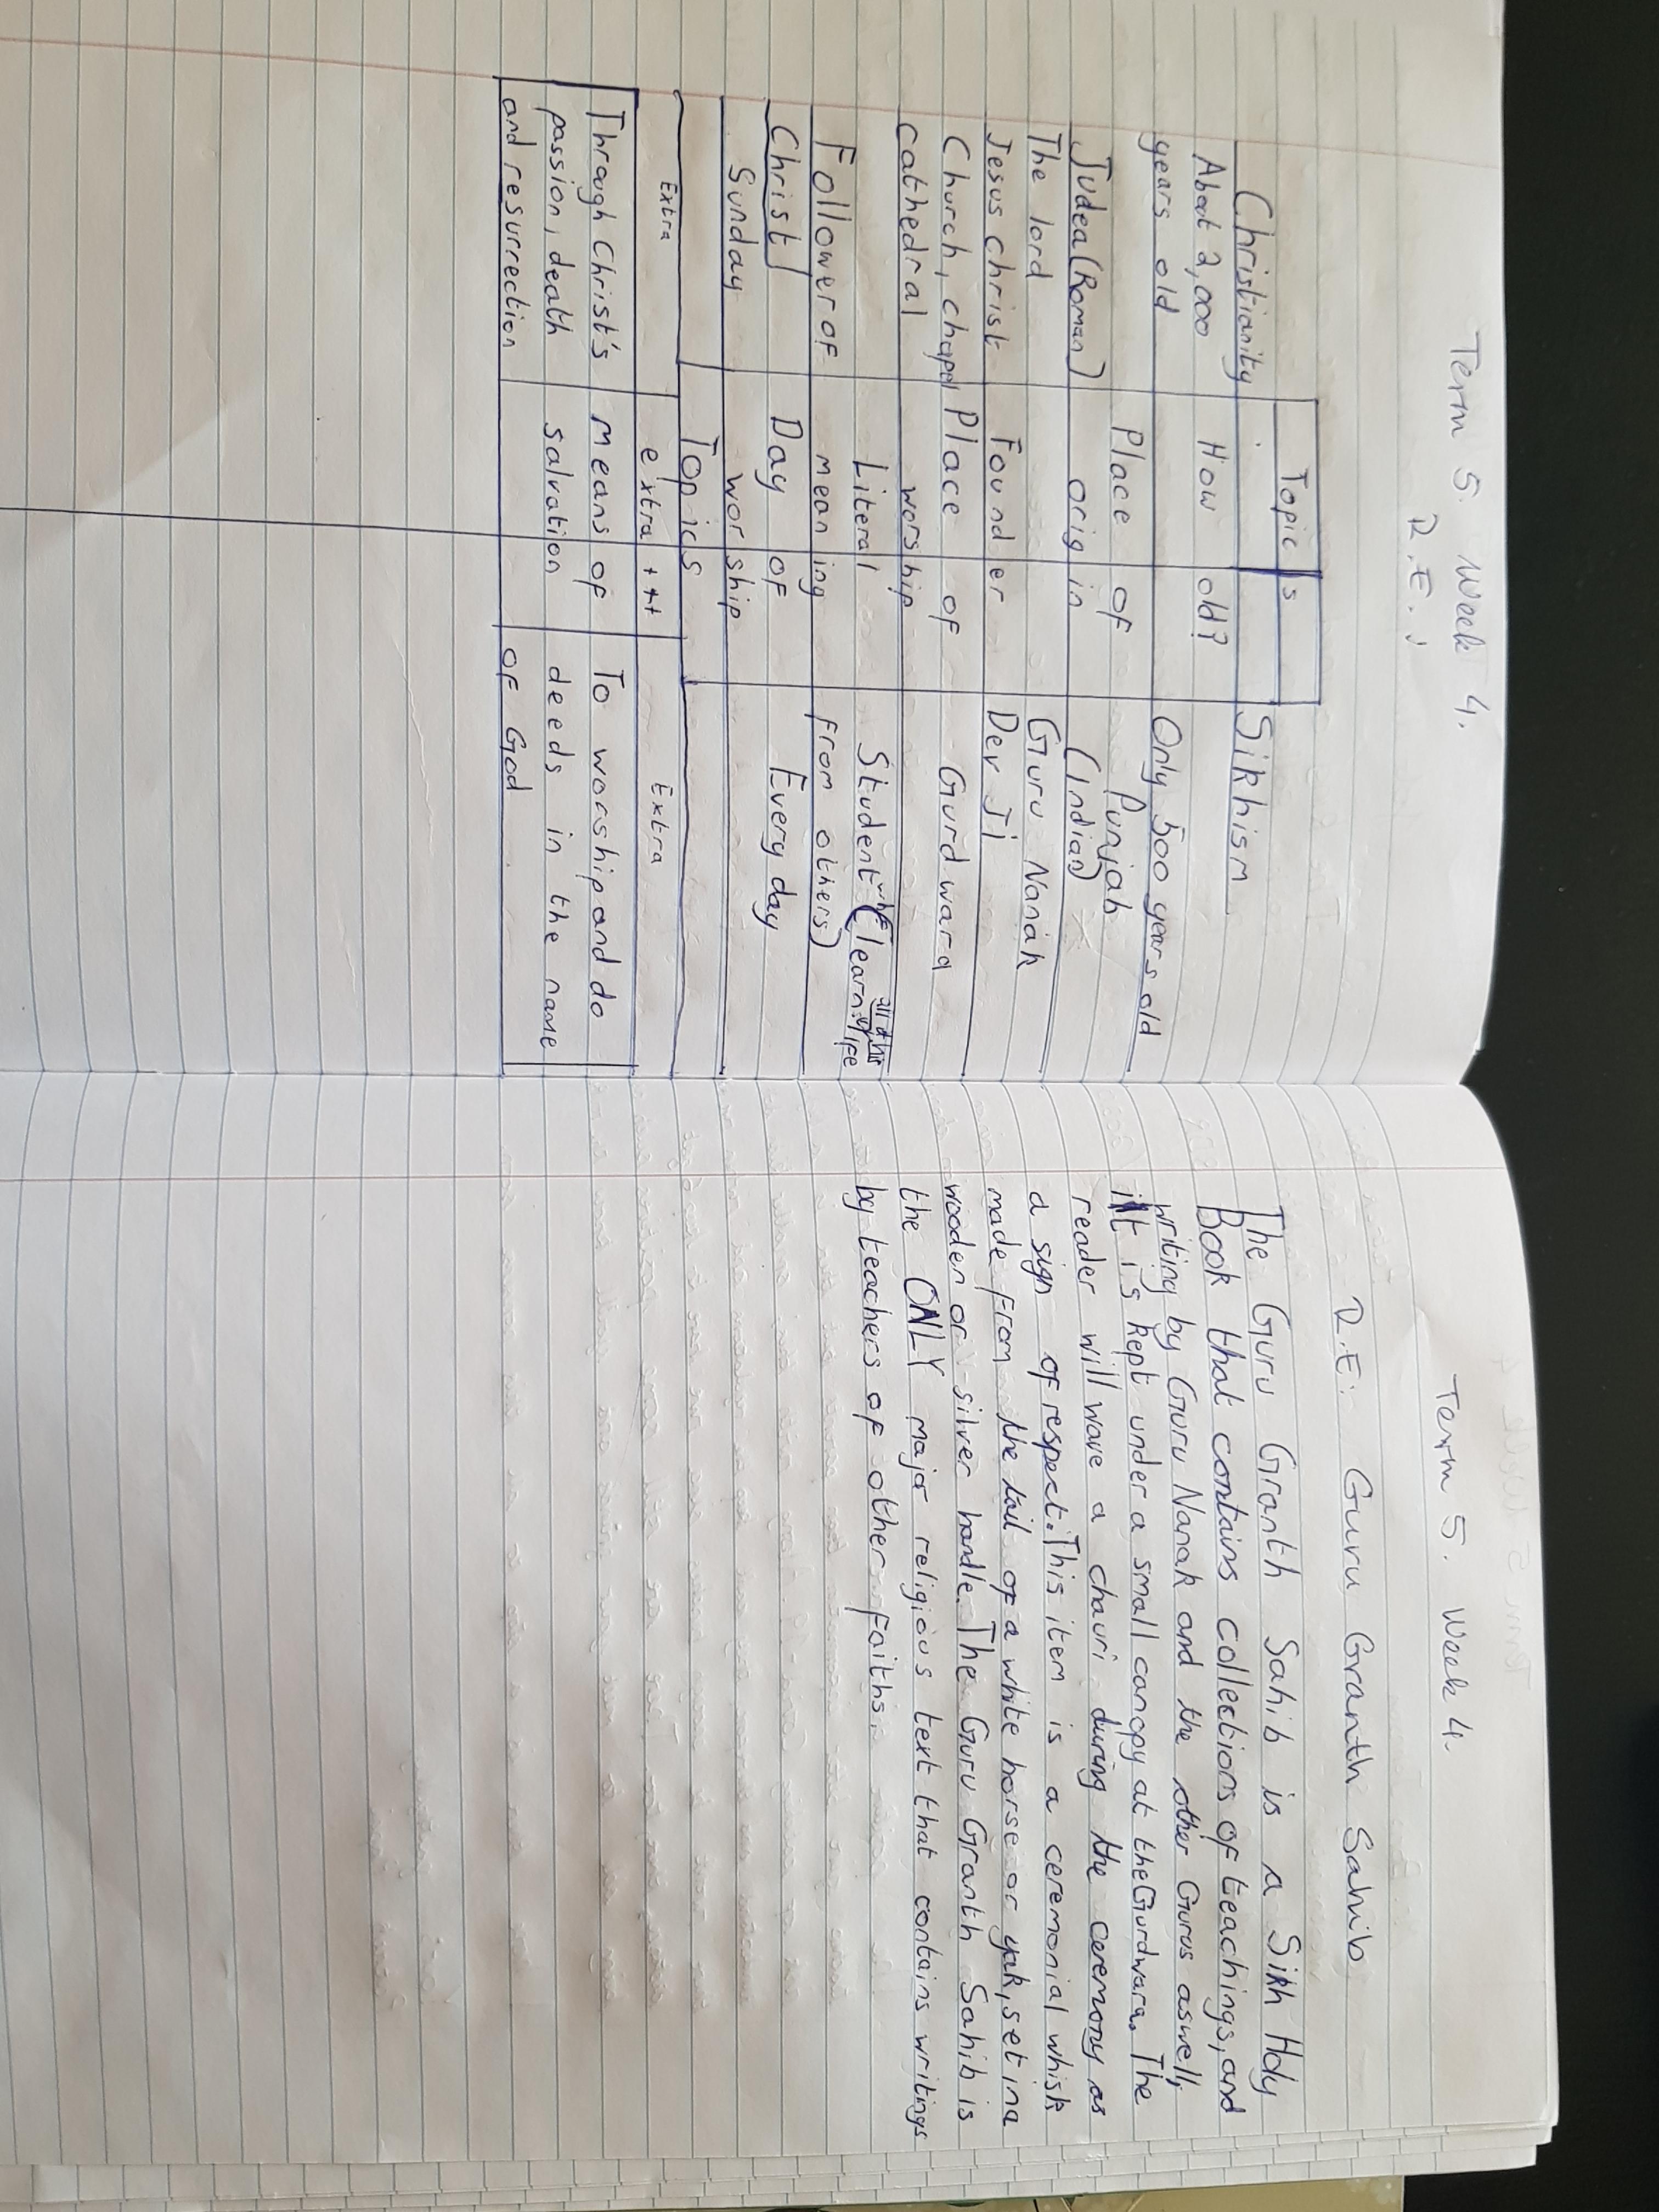 Term 5. Week 4.
R.E.:
Topics
Christianity Sikhism
About 2,000 How old? Only 500 years old
years old
Place of Punjab
Judea (Roman) origin (Indian)
The lord Guru Nanak
Jesus christ Founder Dev Ji
Church, chapel Place of Gurdwara
cathedral worship
Literal Student (learn all
Follower of meaning from others)
Christ Day of Every day
Sunday worship
Topics
Extra extra +++ Extra
Through Christ's Means of To worship and do
passion, death salvation deeds in the name
and resurrection of God
Term 5. Week 4.
R.E: Guru Granth Sahib
The Guru Granth Sahib is a Sikh Holy
Book that contains collections of teachings, and
writing by Guru Nanak and the other Gurus aswell,
it is kept under a small canopy at the Gurdwara. The
reader will wave a chauri during the ceremony as
a sign of respect. This item is a ceremonial whisk
made from the tail of a white horse or yak, set in a
wooden or silver handle. The Guru Granth Sahib is
the ONLY major religious text that contains writings
by teachers of other faiths.